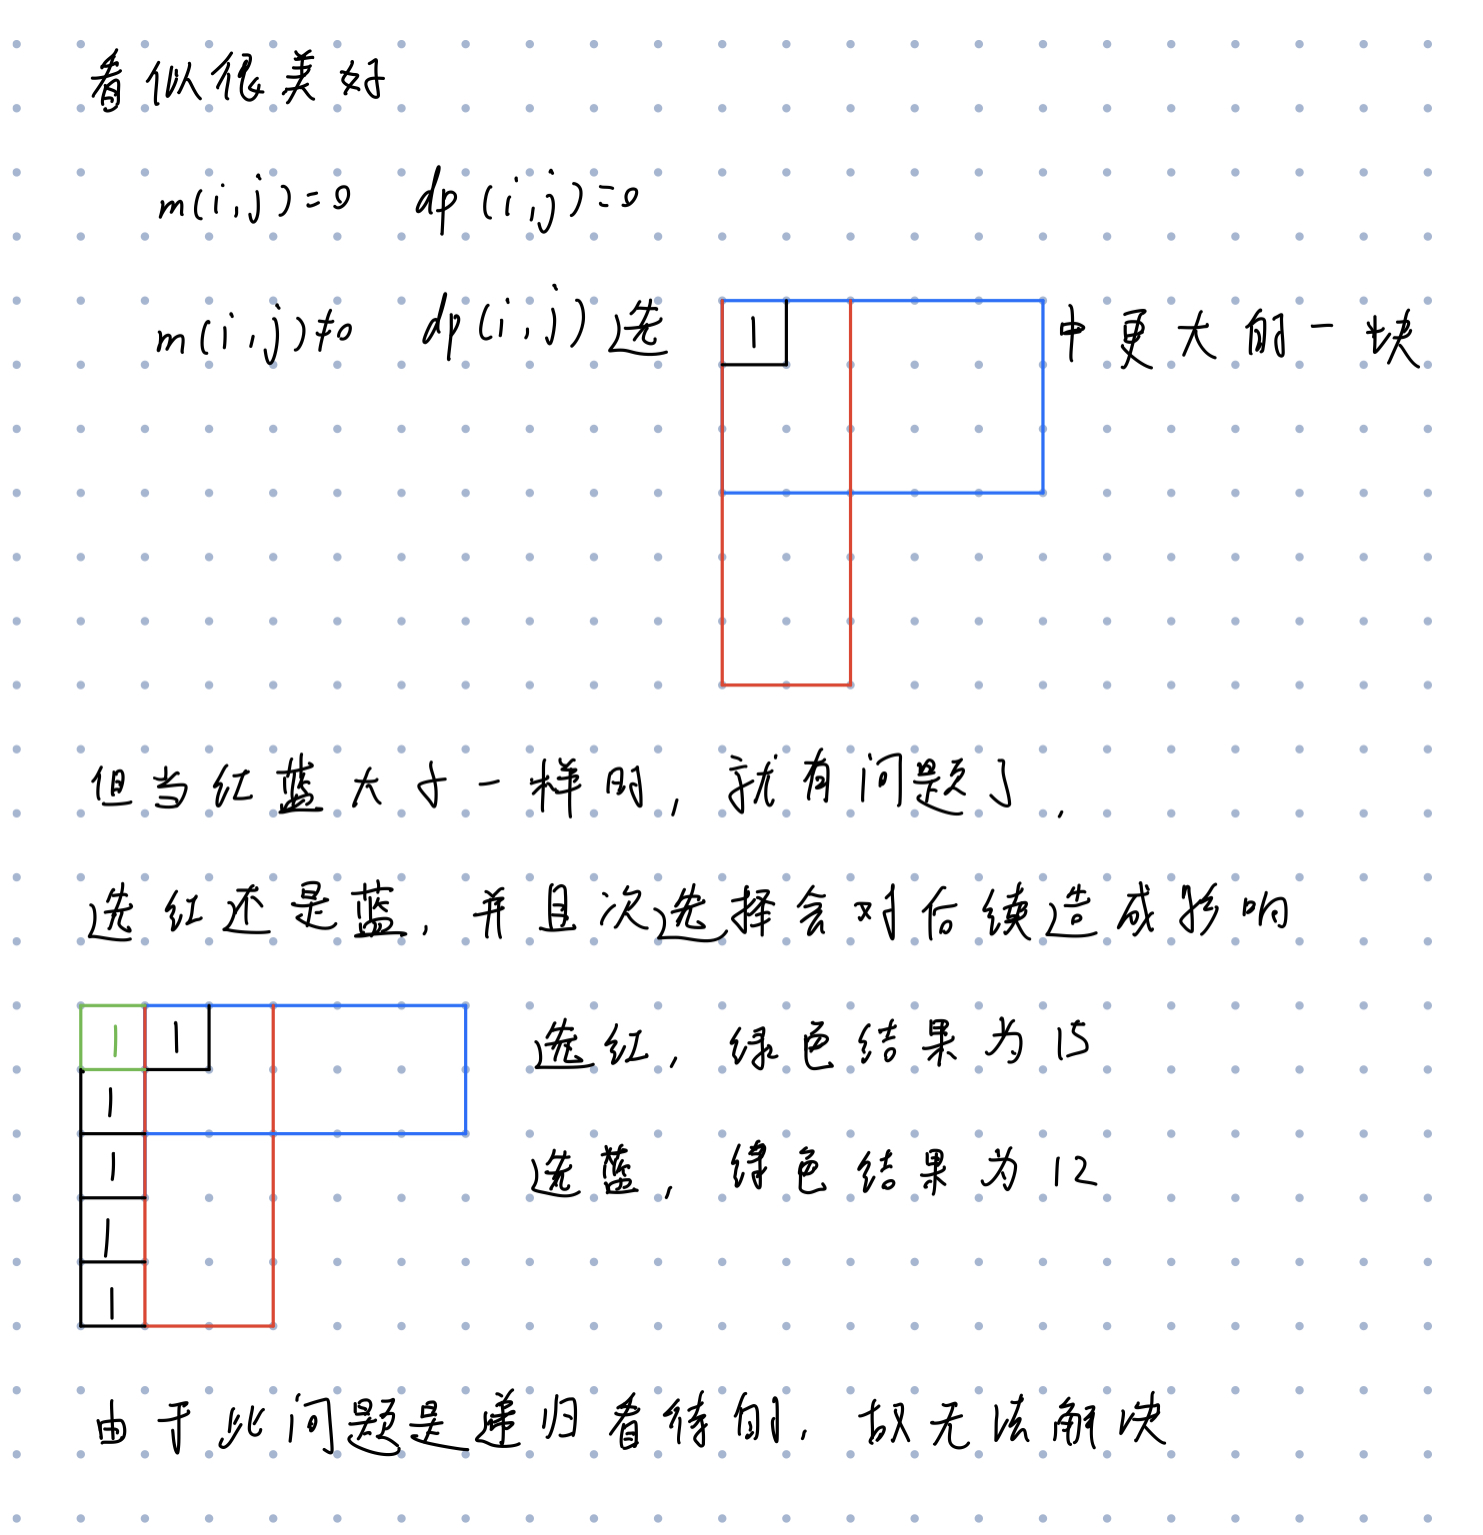 看似很美好
m(i,j)=0 dp(i,j)=0
m(i,j)≠0 dp(i,j)选 1 中更大的一块
但当红蓝大于一样时,就有问题了,
选红还是蓝,并且次选择会对后续造成影响
1 1 选红,绿色结果为15
1
1 选蓝,绿色结果为12
1
1
由于此问题是递归看待的,故无法解决